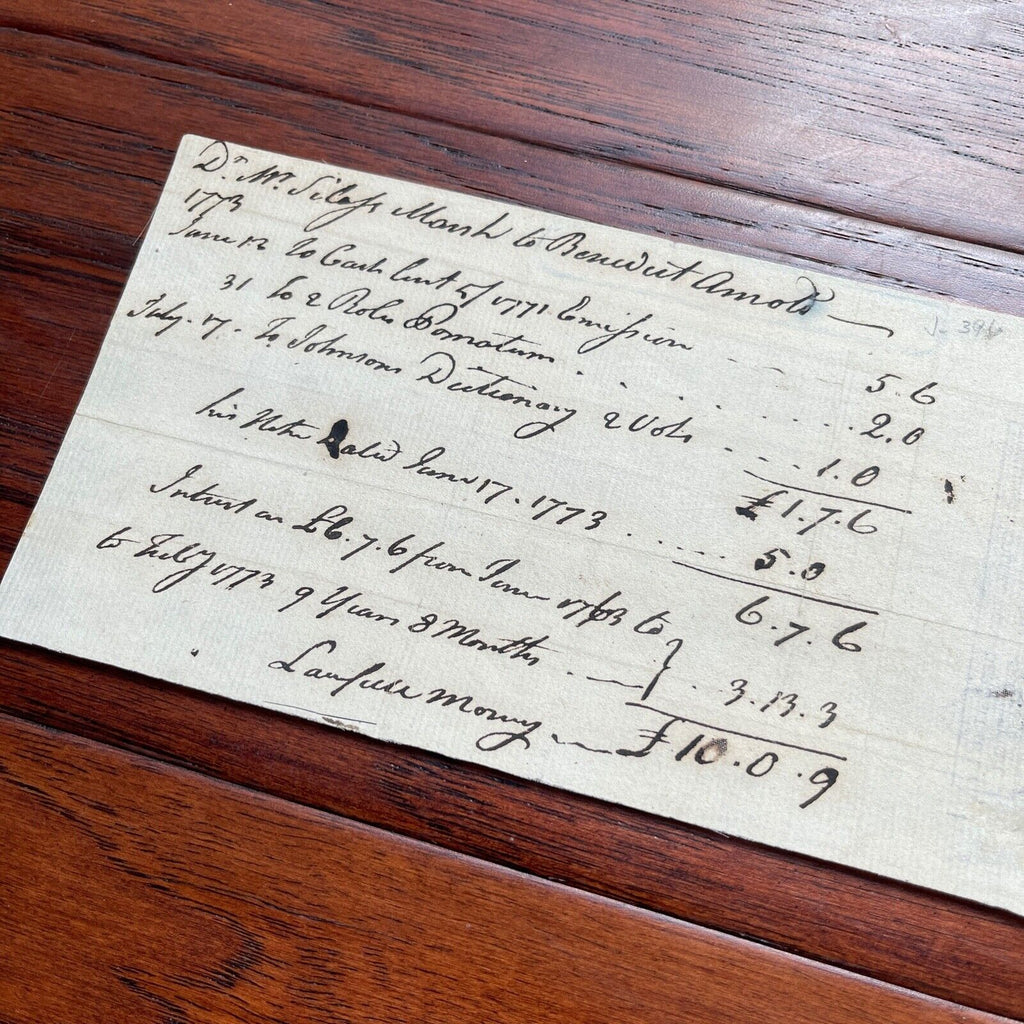 Dr. Mr. Silass Marsh to Benedict Arnold
1773
June 12 To Cash lent of 1771 Emission - - - 5.6
31 to 2 Rolls Pomatum . . . . . . . . 2.0
July. 17. To Johnsons Dictionary 2 Vols - - - . . 1.0
£1.7.6
his Note Dated June 17. 1773 . . . . . . 5.0
6.7.6
Intrest on £6.7.6 from June 1763 to
to Feby 1773 9 Years 8 Months . - } . 3.13.3
Lawfull Money — £10.0.9
J- 396